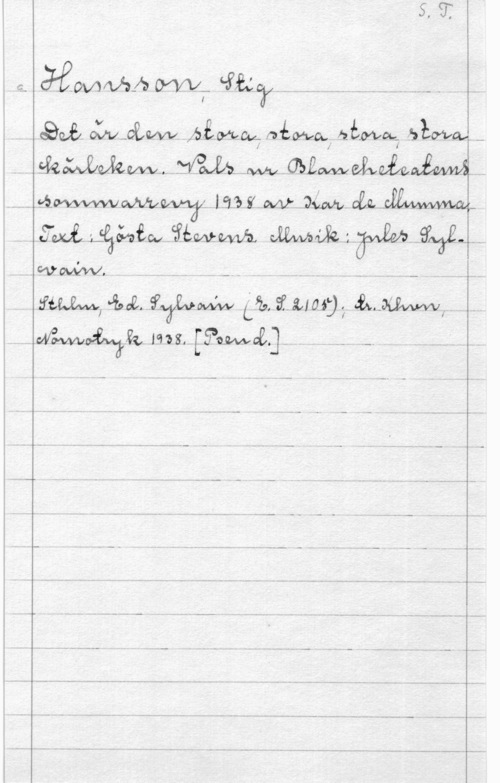 S. T.
c Hansson, Stig
Det är den stora, stora, stora, stora
kärleken. Vals ur Blancheteaterns
sommarrevy 1938 av Kar de Mumma.
Text: Gösta Stevens. Musik: Jules Syl-
vain.
Sthlm, Ed. Sylvain (E. S. 2105); tr. Khvn,
Nornotryk 1938. [Pseud.]